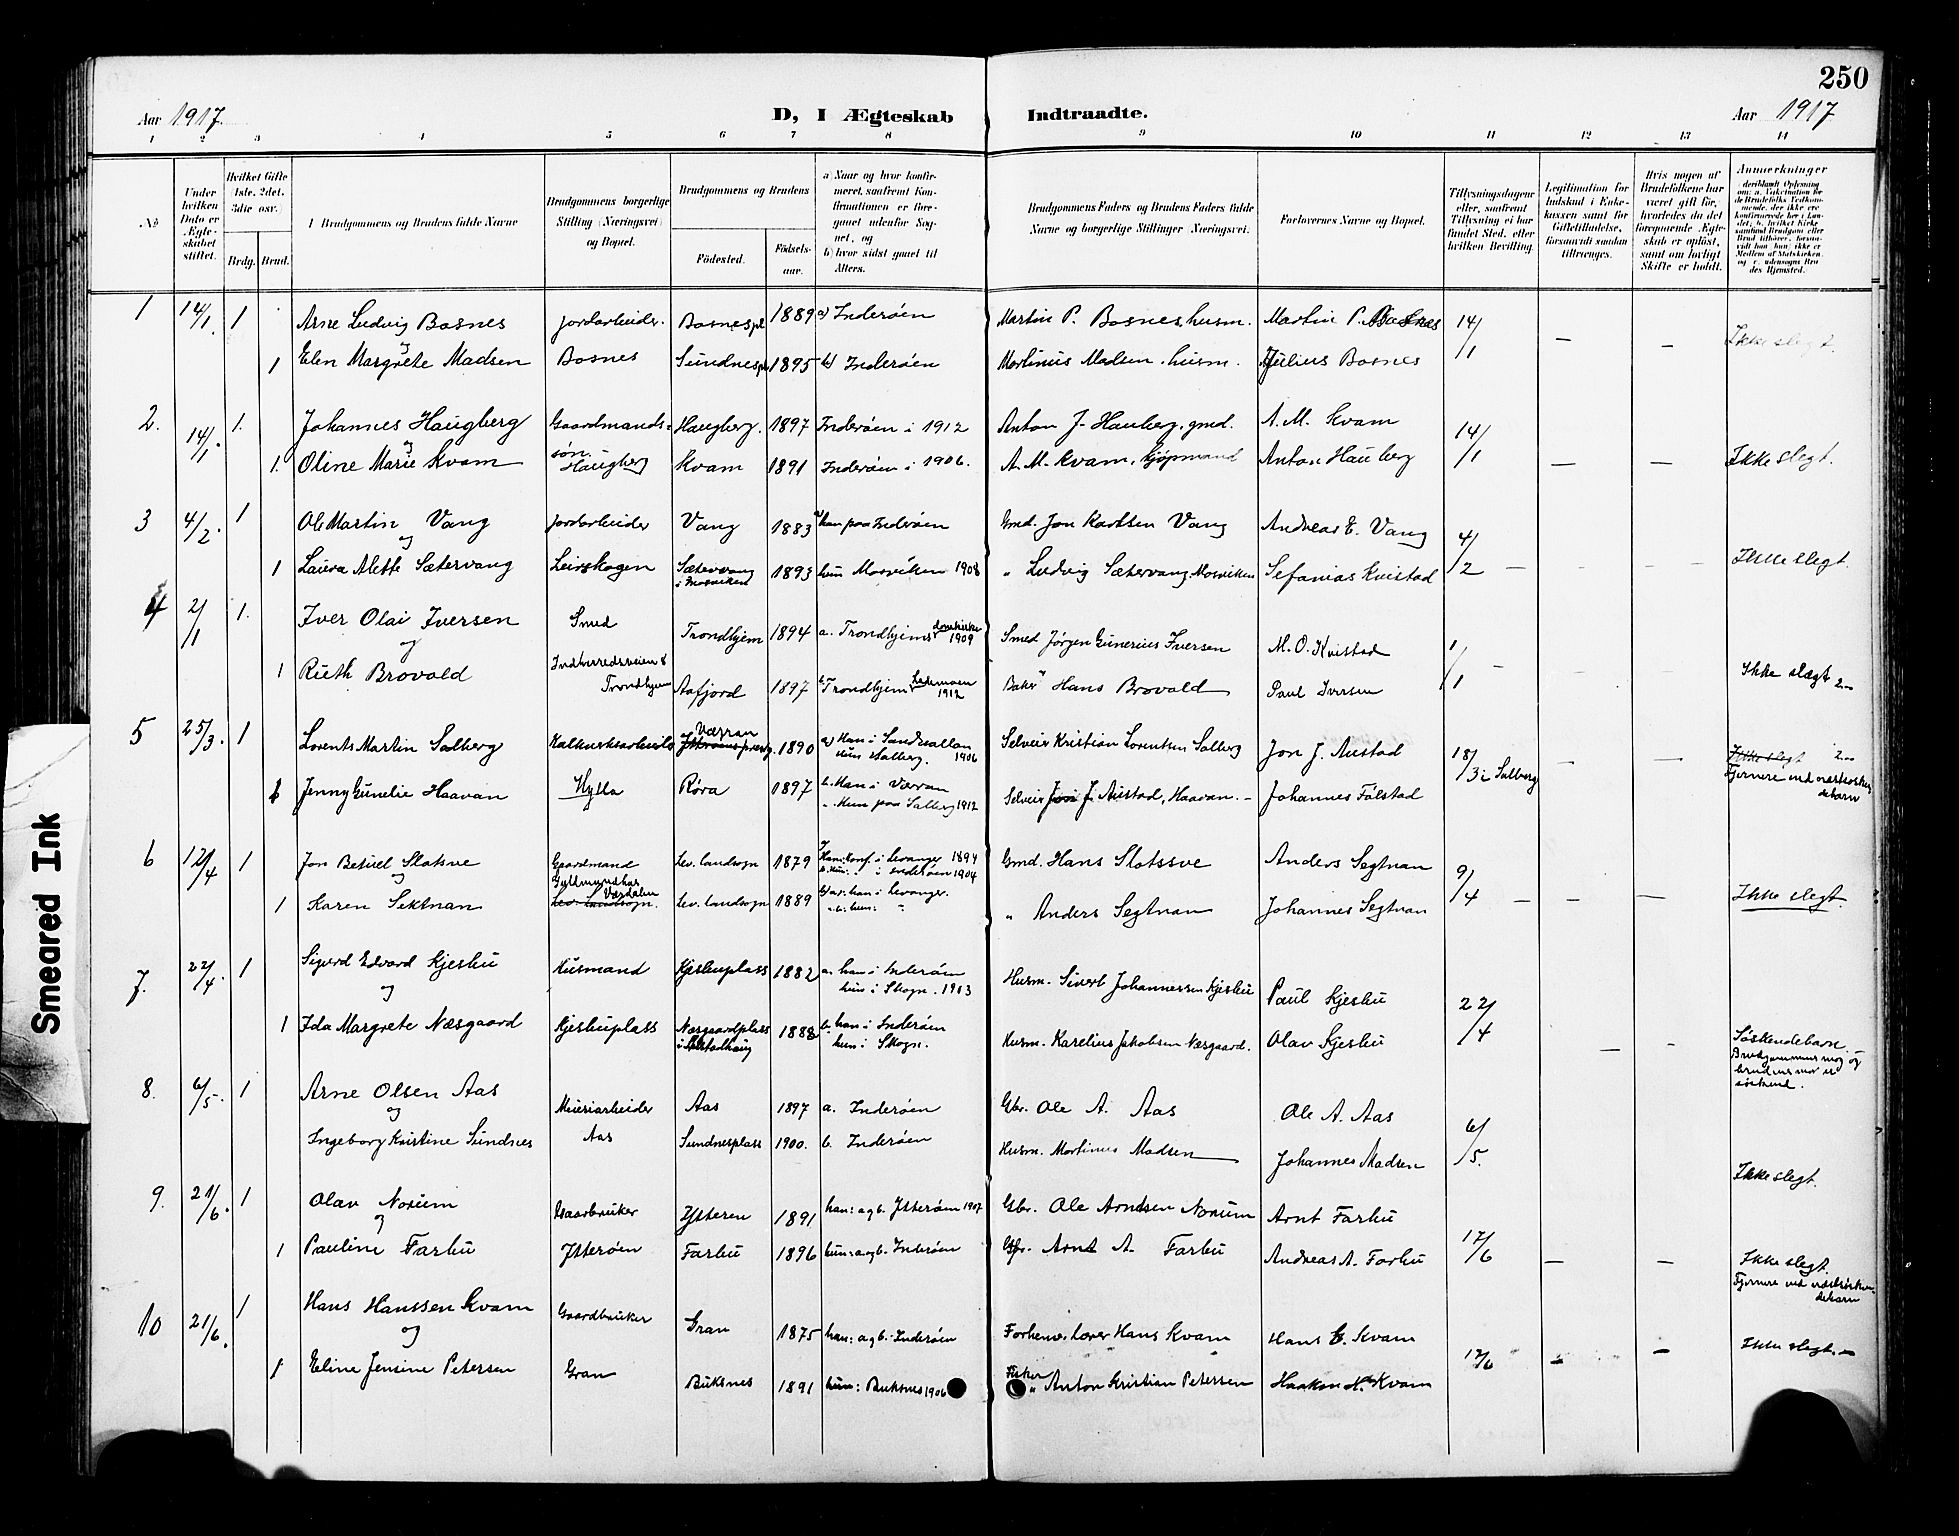 250
Aar 1917. D, I Ægteskab Indtraadte. Aar 1917
1 2 3 4 5 6 7 8 9 10 11 12 13 14
No
Under hvilken Dato er Ægteskabet stiftet.
Hvilket Gifte (1ste, 2det, 3die osv.)
Brdg. Brud.
Brudgommens og Brudens fulde Navne
Brudgommens borgerlige Stilling (Næringsvei) og Bopæl.
Brudgommens og Brudens
Fødested.
Fødselsaar.
a) Naar og hvor konfirmeret, saafremt Konfirmationen er foregaaet udenfor Sognet, og
b) hvor sidst gaaet til Alters.
Brudgommens Faders og Brudens Faders fulde Navne og borgerlige Stillinger Næringsvei.
Forlovernes Navne og Bopæl.
Tillysningsdagene eller, saafremt Tillysning ei har fundet Sted, efter hvilken Bevilling.
Legitimation for Indskud i Enkekassen samt for Giftetilladelse, forsaavidt saadan tiltrænges.
Hvis nogen af Brudefolkene har været gift før, hvorledes da det foregaaende Ægteskab er opløst, samt om lovligt Skifte er holdt.
Anmærkninger
1 14/1. 1 Arne Ludvig Bosnes Jordarbeider. Bosnespl 1889 a) Inderøen Martin P. Bosnes, husm. Martin P. Bosnes 14/1 — — Ikke slegt.
og
1 Elen Margrete Madsen Bosnes Sundnespl 1895 b) Inderøen Martinus Madsen, husm. Julius Bosnes
2. 14/1. 1. Johannes Haugberg Gaardmands- Haugberg. 1897 Inderøen i 1912 Anton J. Hauberg, gmd. A. M. Kvam 14/1
og søn.
1. Oline Marie Kvam Haugberg Kvam 1891 Inderøen i 1906. A. M. Kvam, kjøpmand Anton Hauberg — — Ikke slegt.
3 4/2. 1 Ole Martin Vang Jordarbeider Vang 1883 a) han paa Inderøen Gmd. Jon Karlsen Vang Andreas E. Vang 4/2
og
1 Laura Alette Sætervang Leirskogen Sætervang i Mosviken 1893 hun Mosviken 1908 " Ludvig Sætervang, Mosviken Sefanias Kvistad — — — Ikke slegt.
4 2/1 1. Iver Olai Iversen Smed Trondhjem 1894 a. Trondhjems domkirke 1909 Smed Jørgen Gunerius Iversen M. O. Kvistad 1/1 —
og
1 Ruth Brovold Indherredsveien 8 Trondhjem Aafjord 1897 b. Trondhjem Lademoen 1912 Baker Hans Brovold Paul Iversen Ikke slægt
5 25/3. 1 Lorents Martin Salberg Kalkverksarbeider Værran 1890 a) Han i Sandsallan hun Salberg. 1906 Selveier Kristian Lorentsen Salberg Jon J. Austad 18/3 i Salberg — — Ikke slegt
Fjernere end næstsøskendebarn
1 Jenny Gunelie Haavan Hylla Røra 1897 b. Han i Værran " Hun paa Salberg 1912 Selveier Jon J. Austad, Haavan. Johannes Følstad
6 12/4 1 Jon Betuel Slotsve Gaardmand Lev. landsogn 1879 Han: konf. i Levanger 1894 hun: " i Inderøen 1904 Gmd. Hans Slotssve Anders Segtnan 9/4
og
Værdalen
1 Karen Sektnan Lev. landsogn. Lev. landsogn 1889 han i Levanger. hun: " " Anders Segtnan Johannes Segtnan — — — Ikke slegt.
7. 22/4. 1 Sigurd Edvard Kjeshu Husmand Kjeshuplass 1882 a. han i Inderøen hun i Skogn. 1903 Husm. Sivert Johannessen Kjeshu Paul Kjeshu 22/4
og
1 Ida Margrete Næsgaard Kjeshuplass Næsgaardplass i Alstadhaug 1888 b. han i Inderøen hun i Skogn. Husm. Karelius Jakobsen Næsgaard. Olav Kjeshu — — Søskendebarn.
Brudgommens mor og brudens mor er søskend.
8. 6/5. 1 Arne Olsen Aas Meieriarbeider Aas 1897 a. Inderøen Gbr. Ole A. Aas Ole A. Aas 6/5.
og
Ingeborg Kristine Sundnes Aas Sundnesplass 1900. b. Inderøen Husm. Martinus Madsen Johannes Madsen Ikke slegt.
9. 21/6. 1 Olav Norum Gaardbruker Ytterøen 1891 han: a og b. Ytterøen 1907 Gbr. Ole Arndtsen Norum Arnt Farbu 17/6
og
1 Pauline Farbu Ytterøen Farbu 1896 hun: a og b. Inderøen Gbr. Arnt A. Farbu Andreas A. Farbu — — Ikke slegt.
Fjernere end næstsøskendebarn
10 21/6. 1 Hans Hanssen Kvam Gaardbruker Gran 1875 han: a og b. Inderøen Forhenv. lærer Hans Kvam Hans E. Kvam 17/6 — — Ikke slegt. —
og
1 Eline Jensine Petersen Gran Buksnes 1891 hun: Buksnes 1906 Fisker Anton Kristian Petersen Haakon H. Kvam
Smeared Ink